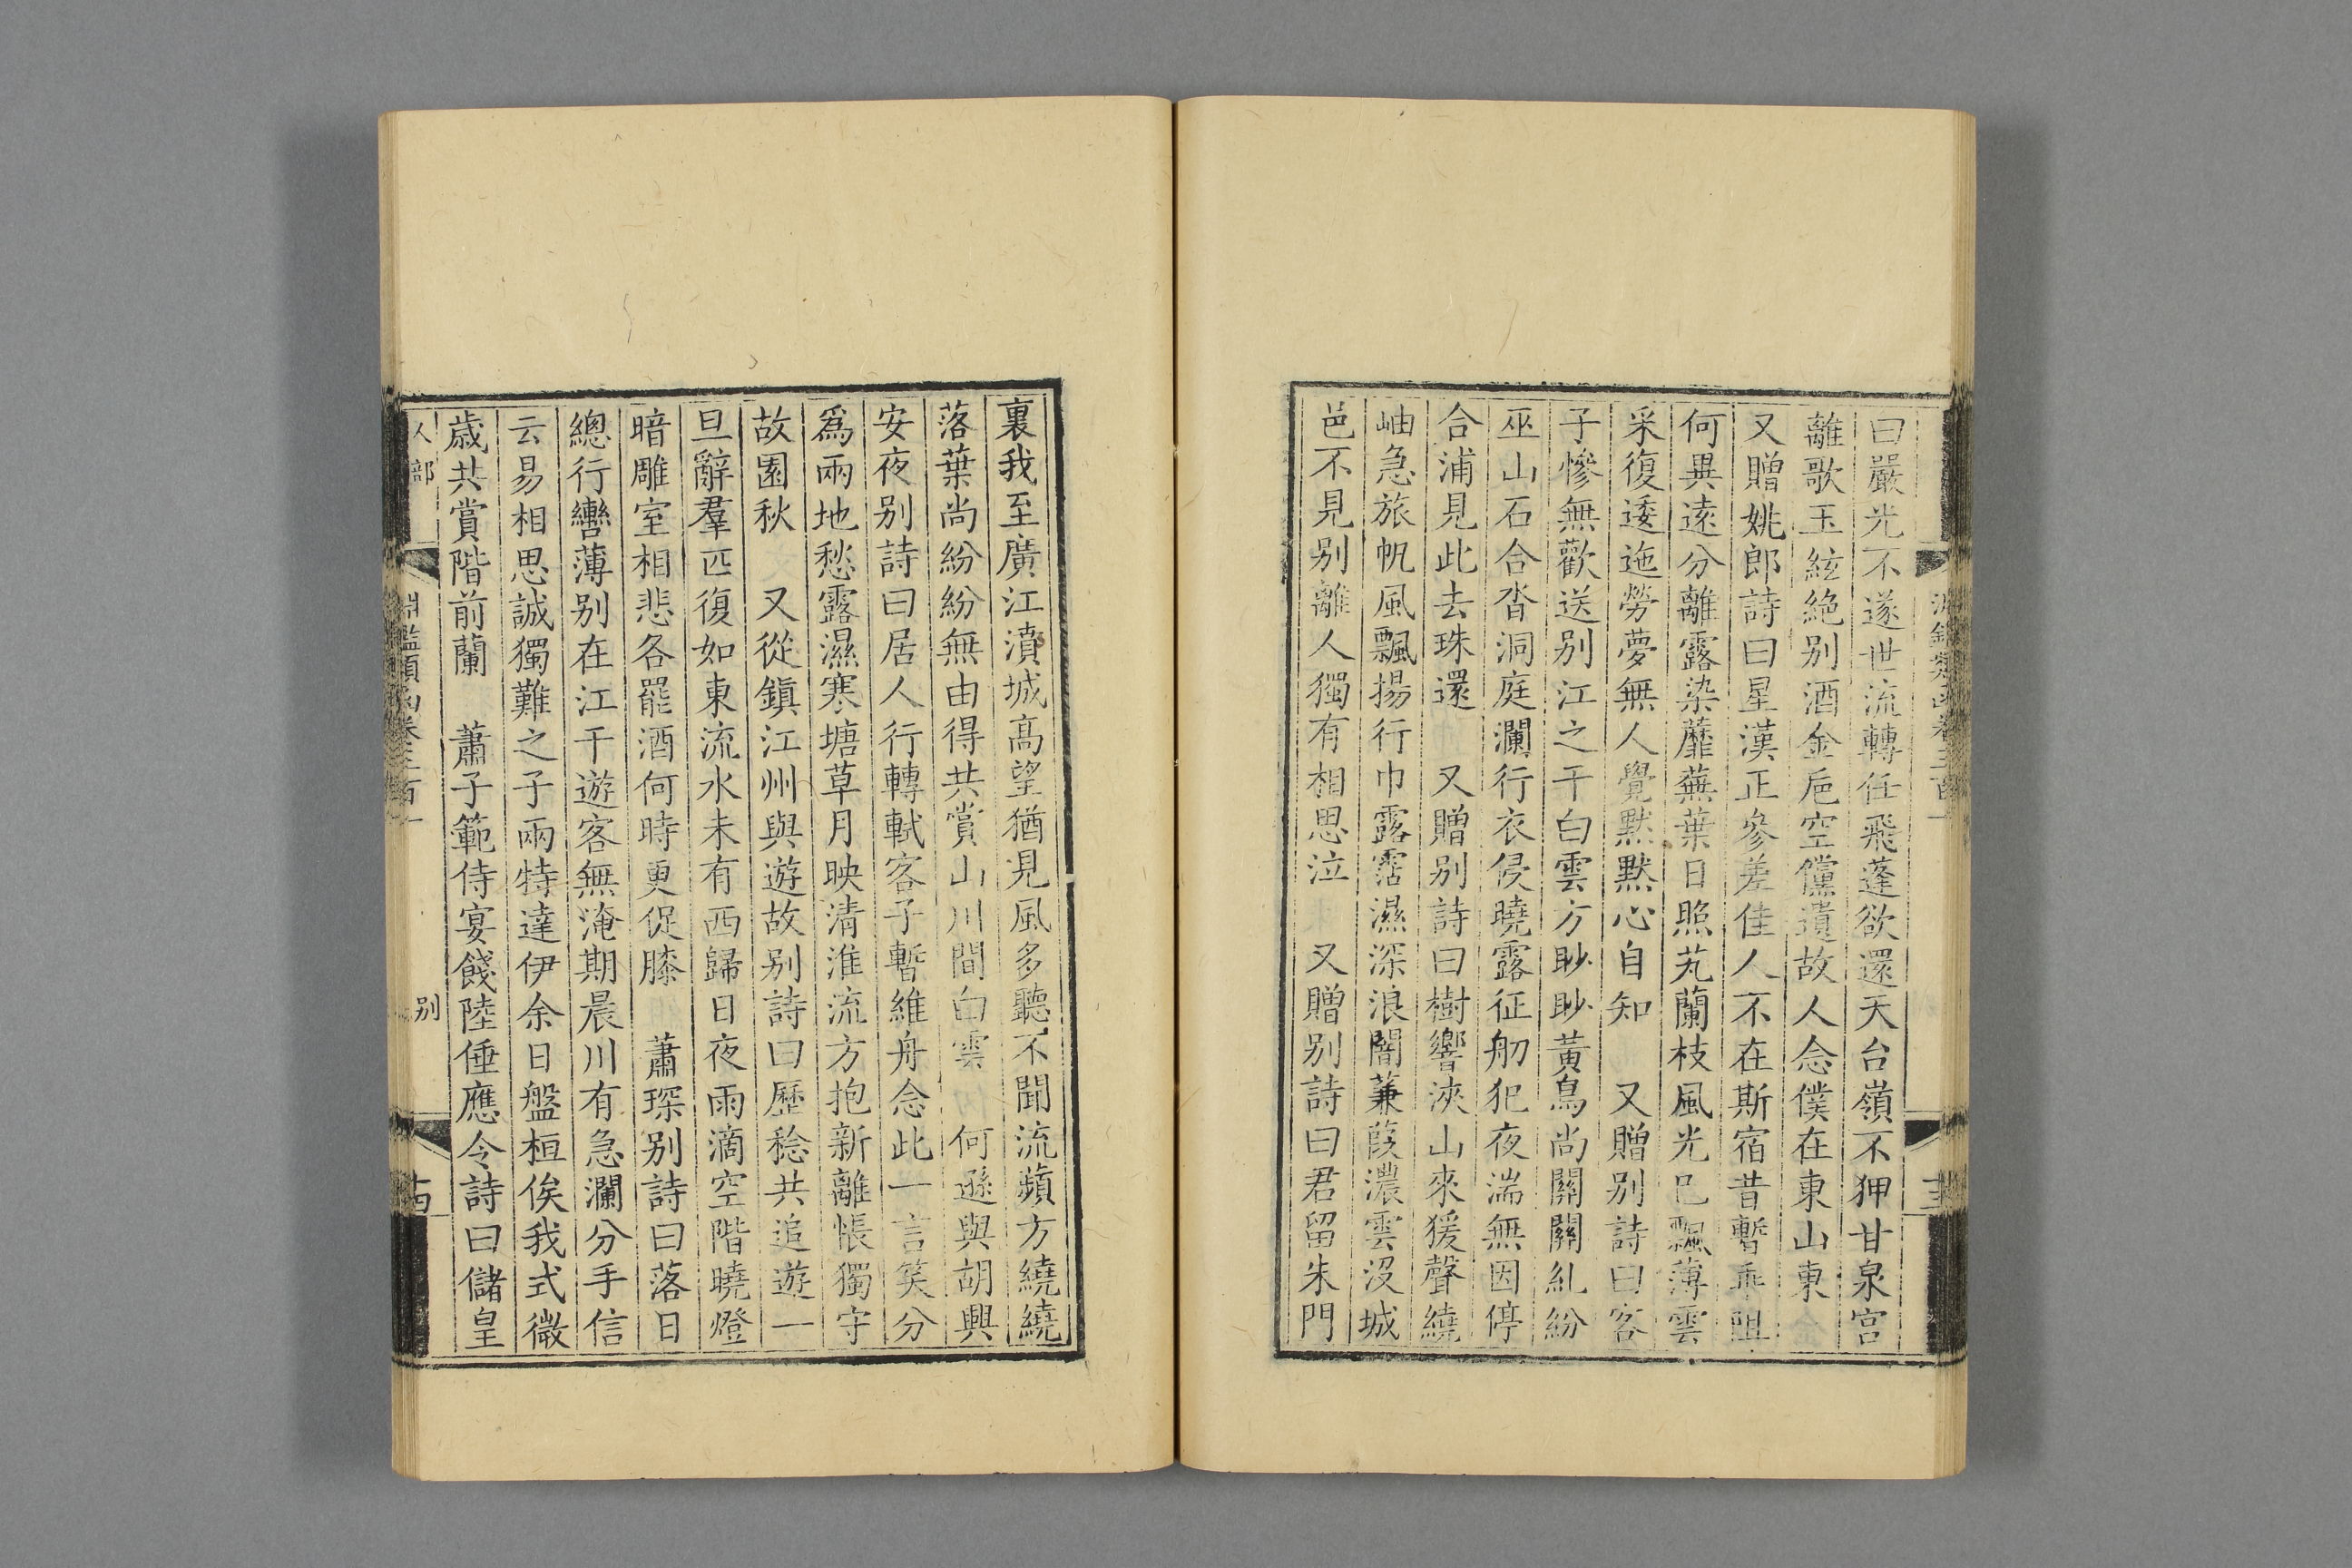 曰嚴光不遂世流轉任飛蓬欲還天台嶺不狎甘泉宮
離歌玉絃絶别酒金巵空儻遺故人念僕在東山東
又贈姚郎詩曰星漢正參差佳人不在斯宿昔暫乖阻
何異遠分離露染蘼蕪葉日照芄蘭枝風光已飄薄雲
采復逶迤勞夢無人覺黙黙心自知　又贈别詩曰客
子慘無歡送别江之干白雲方眇眇黄鳥尚關關糺紛
巫山石合沓洞庭瀾行衣侵曉露征舠犯夜湍無因停
合浦見此去珠還　又贈别詩曰樹響浹山來猨聲繞
岫急旅帆風飄揚行巾露霑濕深浪闇蒹葭濃雲沒城
邑不見别離人獨有相思泣　又贈别詩曰君留朱門
裏我至廣江濆城高望猶見風多聽不聞流蘋方繞繞
落葉尚紛紛無由得共賞山川間白雲　何遜與胡興
安夜别詩曰居人行轉軾客子暫維舟念此一言笑分
爲兩地愁露濕寒塘草月映清淮流方抱新離悵獨守
故園秋　又從鎮江州與遊故别詩曰歷稔共追遊一
旦辭羣匹復如東流水未有西歸日夜雨滴空階曉燈
暗雕室相悲各罷酒何時更促膝　蕭琛别詩曰落日
總行轡薄别在江干遊客無淹期晨川有急瀾分手信
云易相思誠獨難之子兩特達伊余日盤桓俟我式微
歳共賞階前蘭　蕭子範侍宴餞陸倕應令詩曰儲皇
人部
淵鑑類函卷三百一
别
十四